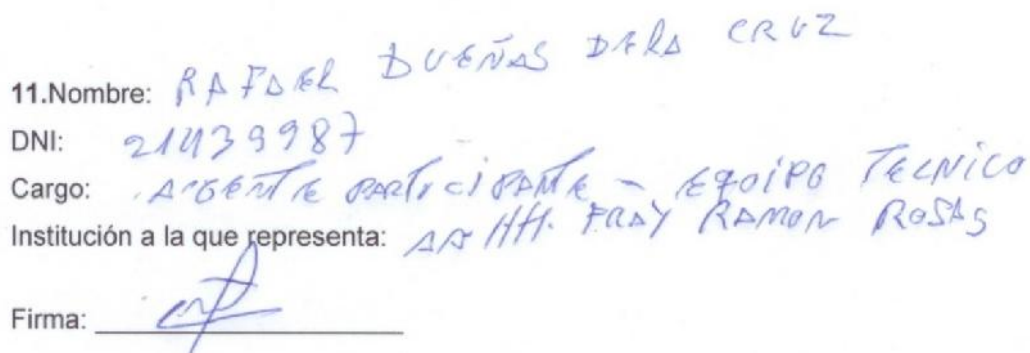 11.Nombre: RAFAEL DUEÑAS DELA CRUZ
DNI: 21439987
Cargo: AGENTE PARTICIPANTE - EQUIPO TECNICO
Institución a la que representa: AA HH. FRAY RAMON ROSAS
Firma: